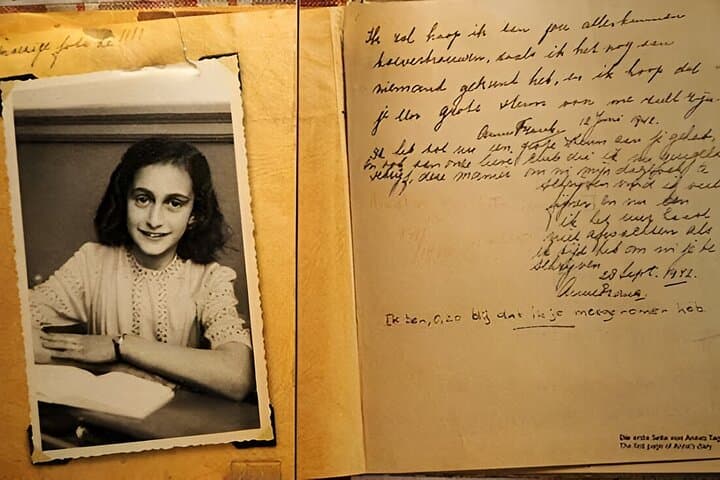 gezellige foto hè!!!!
Ik zal hoop ik aan jou alles kunnen
toevertrouwen, zoals ik het nog aan
niemand gekund heb, en ik hoop dat
je een grote steun van me zult zijn.
Anne Frank. 12 Juni 1942.
Ik heb tot nu een grote steun aan je gehad,
en ook aan onze lieve club die ik nu
schrijf, deze manier om in mijn dagboek te
schrijven vind ik veel
fijner en nu kan
ik het uur haast
niet afwachten als
ik tijd heb om in je te
schrijven
28 Sept. 1942.
Anne Frank.
Ik ben, O, zo blij dat ik je meegenomen heb
Die erste Seite von Annes Tag
The first page of Anne's diary